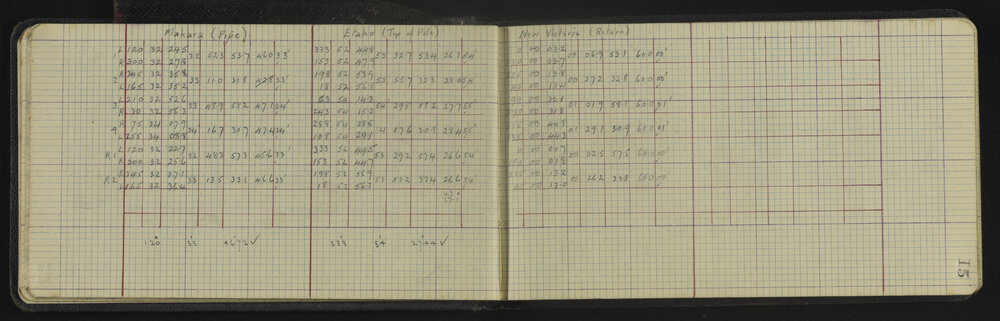 Makara (Pipe) Etako (Top of Pile) New Victoria (Return)
L 120 32 24.5 333 52 44.8 0 00 03.2
1 32 52.3 53.7 46.0 33' 53 32.7 53.4 26.1 54' 00 06.9 53.1 60.0 00'
R 300 32 27.8 153 52 47.9 00 03.7
R 345 32 35.8 198 52 53.9 00 13.8
2 33 11.0 31.8 42.8 33' 53 55.7 32.3 28.0 54' 00 27.2 32.8 60.0 00'
L 165 32 35.2 18 52 56.8 00 13.4
L 210 32 52.6 63 54 14.3 00 30.1
3 33 48.9 58.2 47.1 34' 54 29.5 58.2 27.7 55' 01 01.9 58.1 60.0 01'
R 30 32 56.3 243 54 15.2 00 31.8
R 75 34 07.9 288 54 28.5 00 44.8
4 34 16.7 30.7 47.4 34' 4 57.6 30.8 28.4 55' 01 29.1 30.9 60.0 01'
L 255 34 08.8 108 54 29.1 00 44.3
L 120 32 22.7 333 52 44.5 0 00 00.7
R1 32 48.3 57.3 45.6 33' 53 29.2 57.4 26.6 54' 00 02.5 57.5 60.0 00'
R 300 32 25.6 153 52 44.7 00
R 345 32 37.1 198 52 56.9 00 13.2
R2 33 13.5 33.1 46.6 33' 53 53.2 33.4 26.6 54' 00 26.2 33.8 60.0 00'
L 165 32 36.4 18 52 56.3 00 13.0
120 33 46.72 ✓ 333 54 27.44 ✓
15